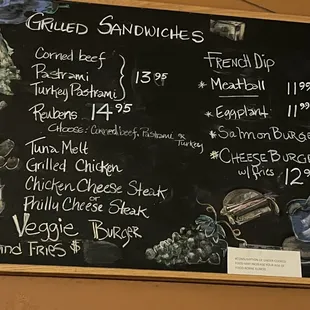 GRILLED SANDWICHES
Corned beef
Pastrami
Turkey Pastrami
13.95
Reubens 14.95
Choose: Corned beef, Pastrami or
Turkey
Tuna Melt
Grilled Chicken
Chicken Cheese Steak
or
Philly Cheese Steak
Veggie BURGER
and FRIES $
FRENCH DIP
* Meatball 11.95
* Eggplant 11.9
* SALMON BURGE
* CHEESE BURGER
w/ fries 12.9